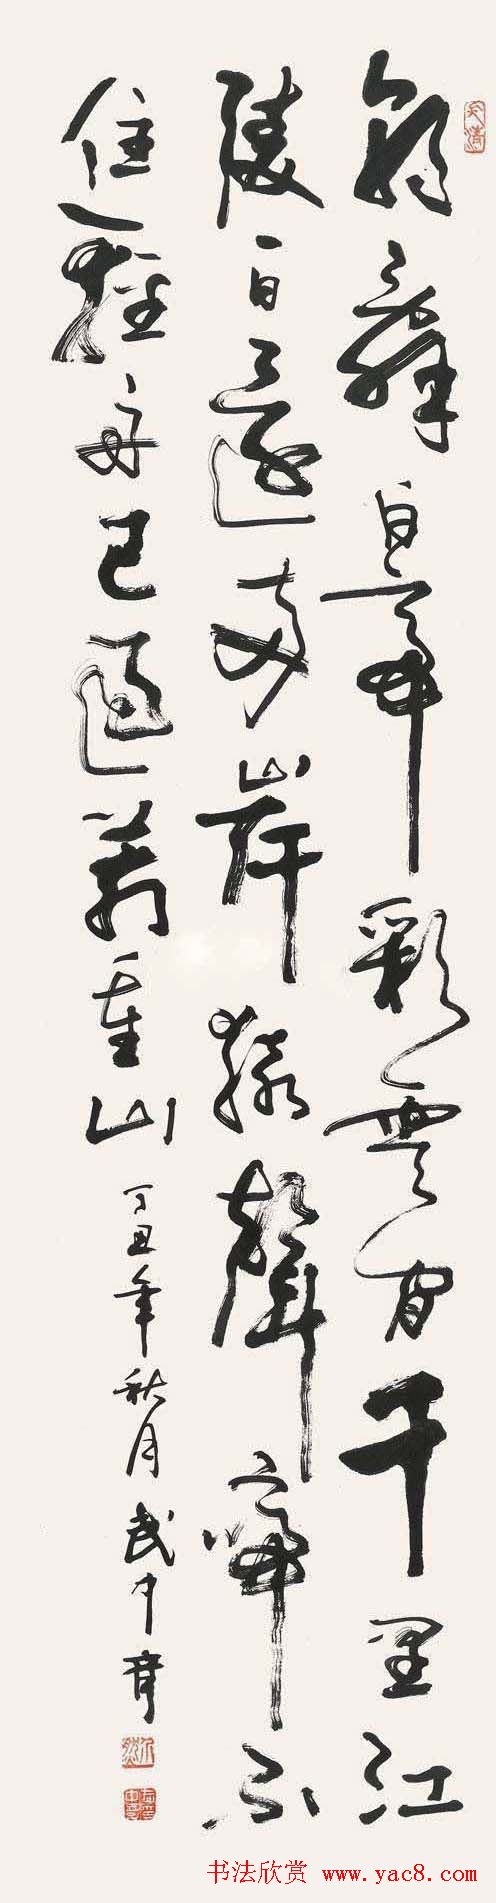 朝辭白帝彩雲間千里江
陵一日還兩岸猿聲啼不
住輕舟已過萬重山 丁丑年秋月 武中奇
书法欣赏 www.yac8.com